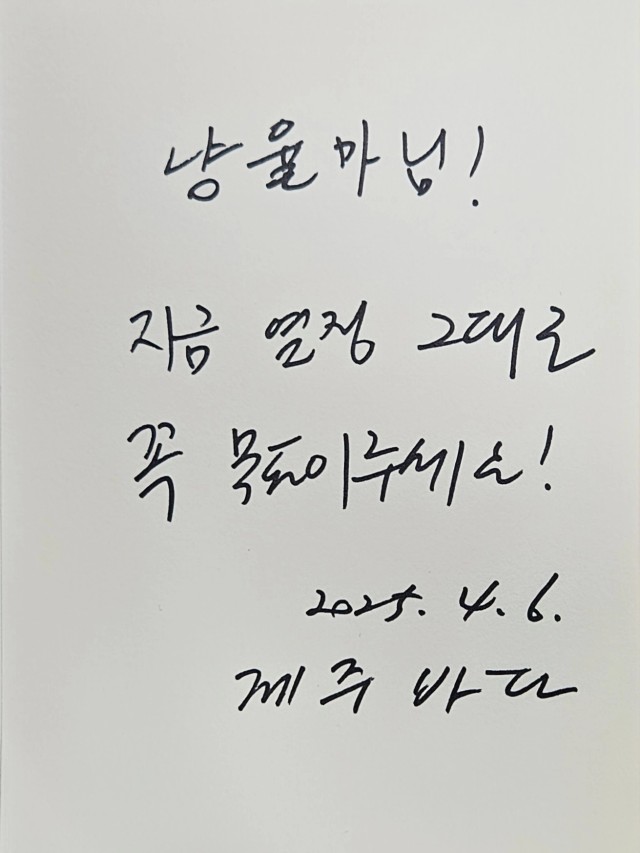 냥율마님!
지금 열정 그대로
꼭 목표이루세요!
2025. 4. 6.
제주 바다